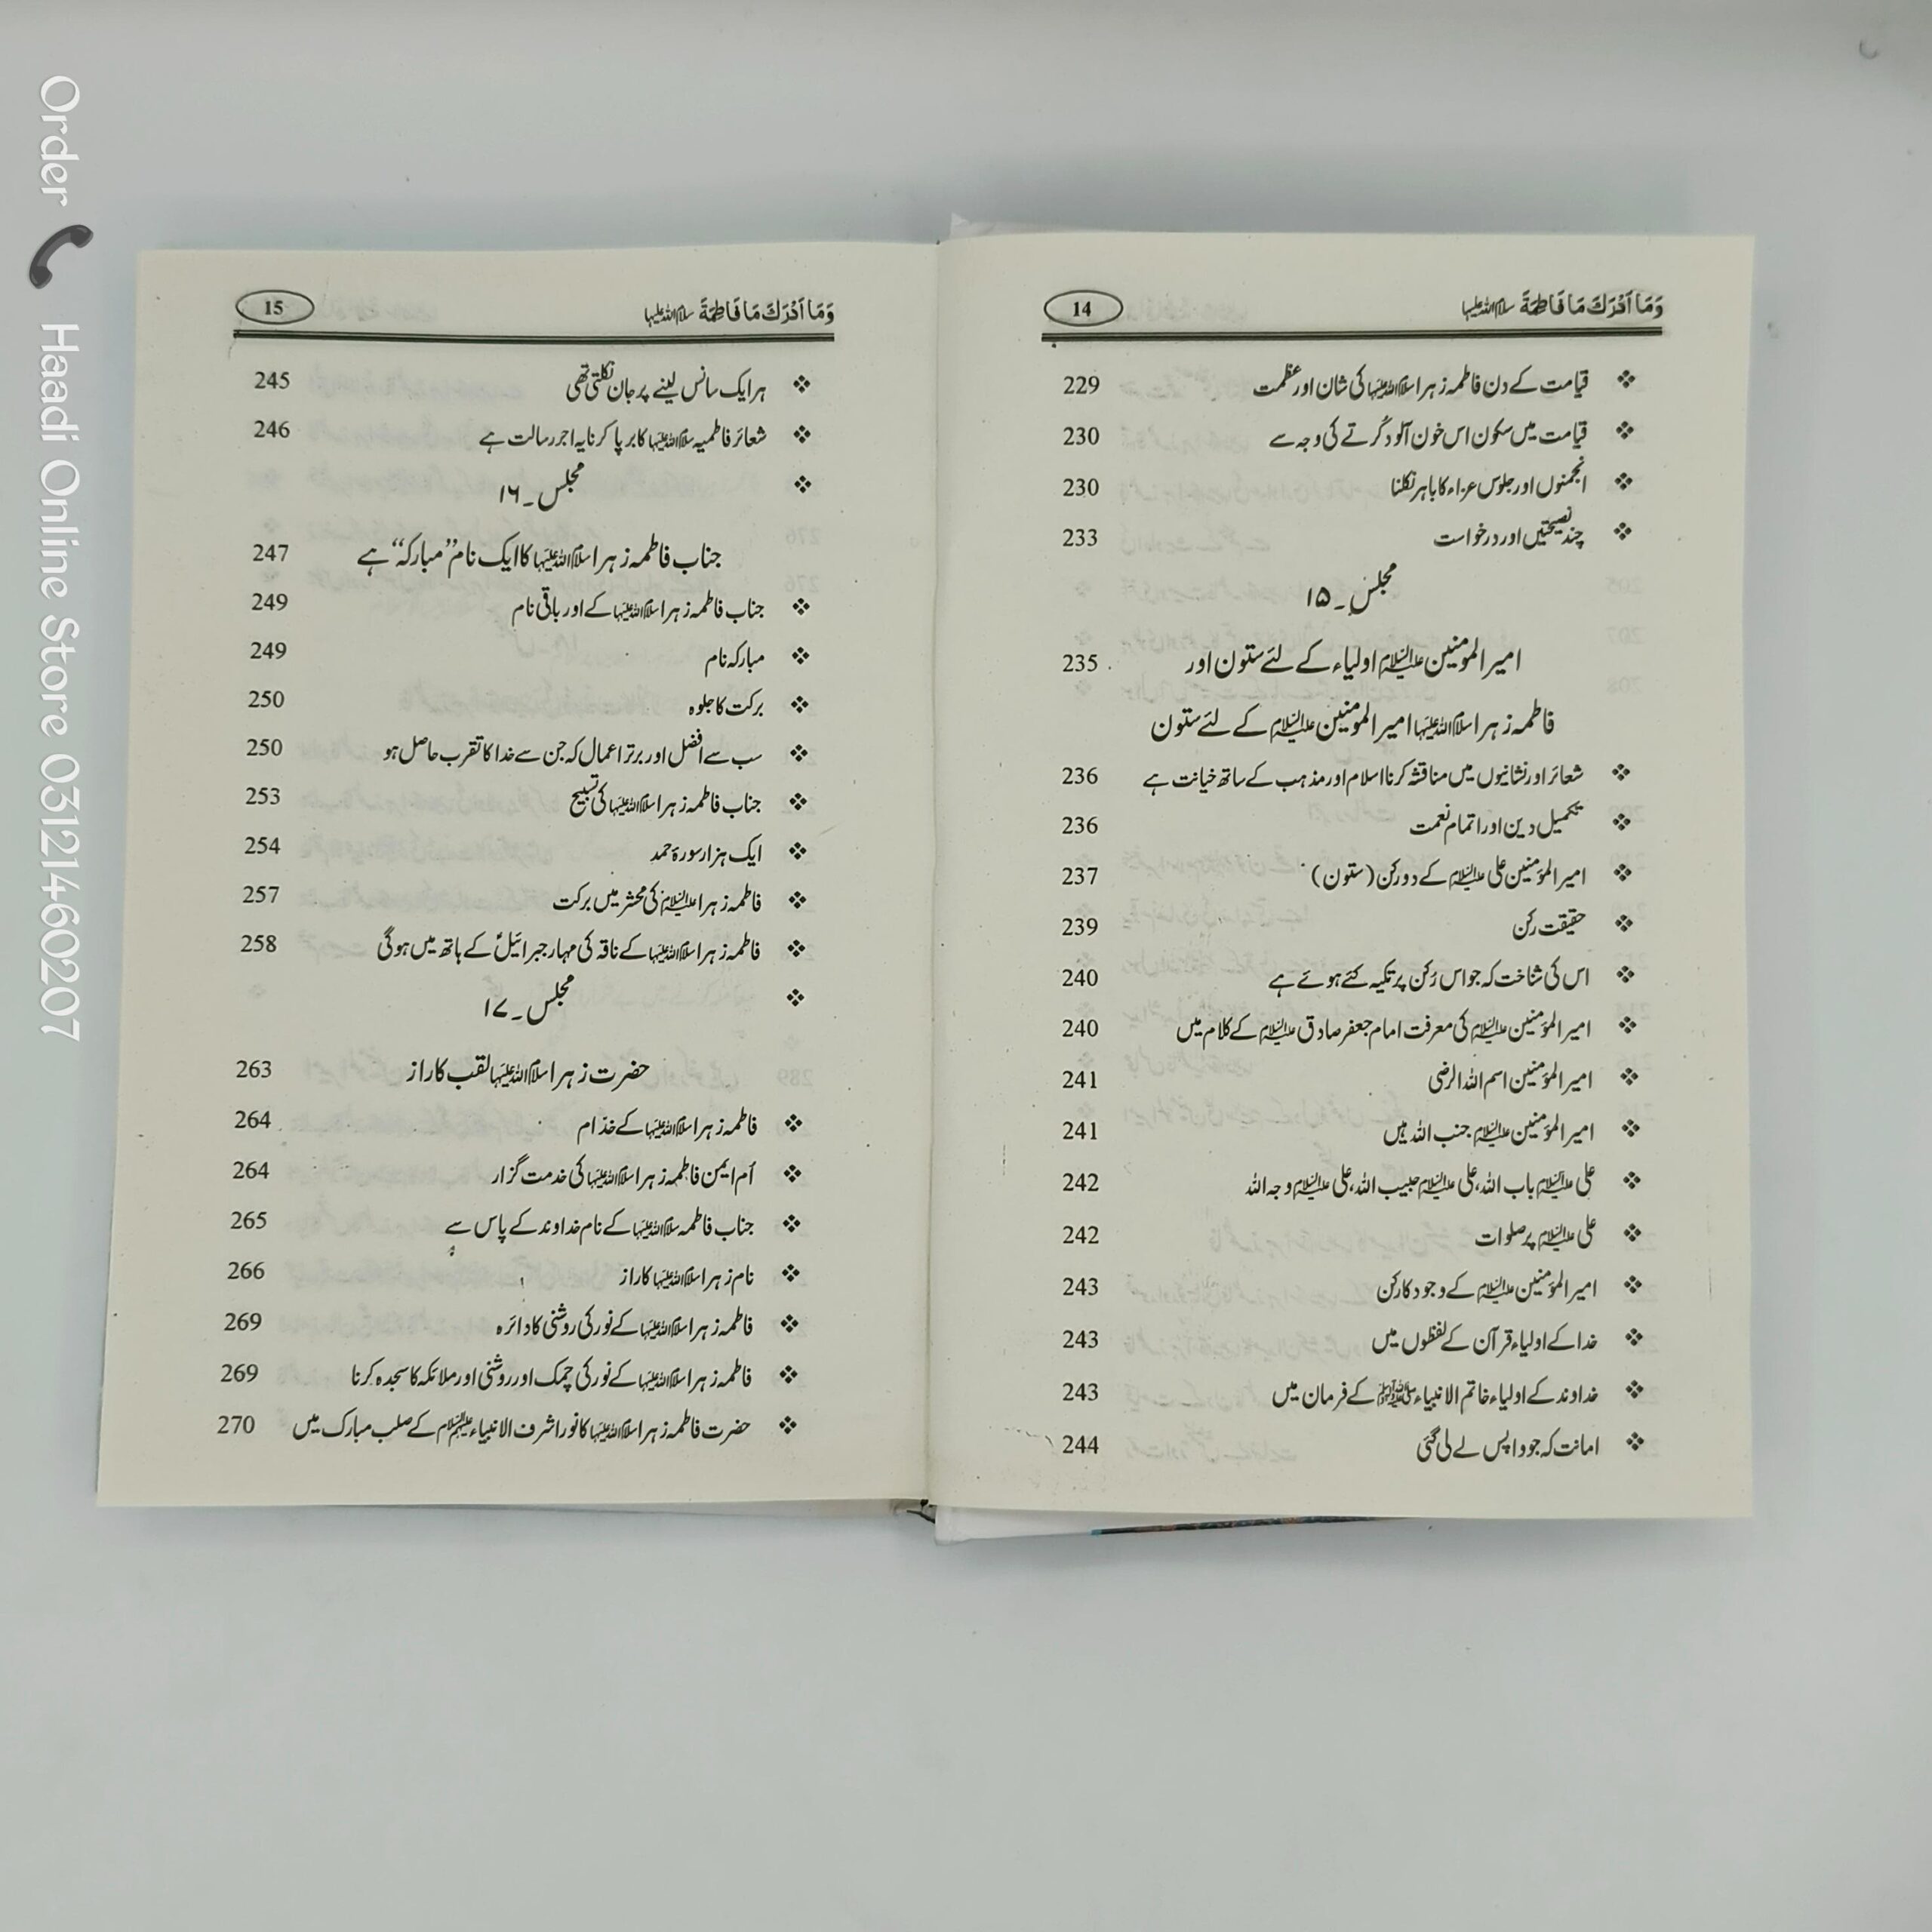 وَمَا اَدْرَكَ مَا فَاطِمَةَ سلام اللہ علیہا 14
قیامت کے دن فاطمہ زہرا سلام اللہ علیہا کی شان اور عظمت 229
قیامت میں سکون اس خون آلود کُرتے کی وجہ سے 230
انجمنوں اور جلوس عزاء کا باہر نکلنا 230
چند نصیحتیں اور درخواست 233
مجلس۔۱۵
امیر المومنین علیہ السلام اولیاء کے لئے ستون اور 235
فاطمہ زہرا سلام اللہ علیہا امیر المومنین علیہ السلام کے لئے ستون
شعائر اور نشانیوں میں مناقشہ کرنا اسلام اور مذہب کے ساتھ خیانت ہے 236
تکمیل دین اور اتمام نعمت 236
امیر المؤمنین علی علیہ السلام کے دو رکن (ستون) 237
حقیقت رکن 239
اس کی شناخت کہ جو اس رُکن پر تکیہ کئے ہوئے ہے 240
امیر المؤمنین علیہ السلام کی معرفت امام جعفر صادق علیہ السلام کے کلام میں 240
امیر المؤمنین اسم اللہ الرضی 241
امیر المؤمنین علیہ السلام جنب اللہ ہیں 241
علی علیہ السلام باب اللہ، علی علیہ السلام حبیب اللہ، علی علیہ السلام وجہ اللہ 242
علی علیہ السلام پر صلوات 242
امیر المؤمنین علیہ السلام کے وجود کا رکن 243
خدا کے اولیاء قرآن کے لفظوں میں 243
خداوند کے اولیاء خاتم الانبیاء صلی اللہ علیہ وآلہ وسلم کے فرمان میں 243
امانت کہ جو واپس لے لی گئی 244
وَمَا اَدْرَكَ مَا فَاطِمَةَ سلام اللہ علیہا 15
ہر ایک سانس لینے پر جان نکلتی تھی 245
شعائر فاطمیہ سلام اللہ علیہا کا برپا کرنا یہ اجر رسالت ہے 246
مجلس۔۱۶
جناب فاطمہ زہرا سلام اللہ علیہا کا ایک نام ’’مبارکہ‘‘ ہے 247
جناب فاطمہ زہرا سلام اللہ علیہا کے اور باقی نام 249
مبارکہ نام 249
برکت کا جلوہ 250
سب سے افضل اور برتر اعمال کہ جن سے خدا کا تقرب حاصل ہو 250
جناب فاطمہ زہرا سلام اللہ علیہا کی تسبیح 253
ایک ہزار سورۂ حمد 254
فاطمہ زہرا علیہ السلام کی محشر میں برکت 257
فاطمہ زہرا سلام اللہ علیہا کے ناقہ کی مہار جبرائیلؑ کے ہاتھ میں ہوگی 258
مجلس۔۱۷
حضرت زہرا سلام اللہ علیہا لقب کا راز 263
فاطمہ زہرا سلام اللہ علیہا کے خدّام 264
اُم ایمن فاطمہ زہرا سلام اللہ علیہا کی خدمت گزار 264
جناب فاطمہ سلام اللہ علیہا کے نام خداوند کے پاس سے 265
نام زہرا سلام اللہ علیہا کا راز 266
فاطمہ زہرا سلام اللہ علیہا کے نور کی روشنی کا دائرہ 269
فاطمہ زہرا سلام اللہ علیہا کے نور کی چمک اور روشنی اور ملائکہ کا سجدہ کرنا 269
حضرت فاطمہ زہرا سلام اللہ علیہا کا نور اشرف الانبیاء علیہم السلام کے صلب مبارک میں 270
Order 📞 Haadi Online Store 03121460207